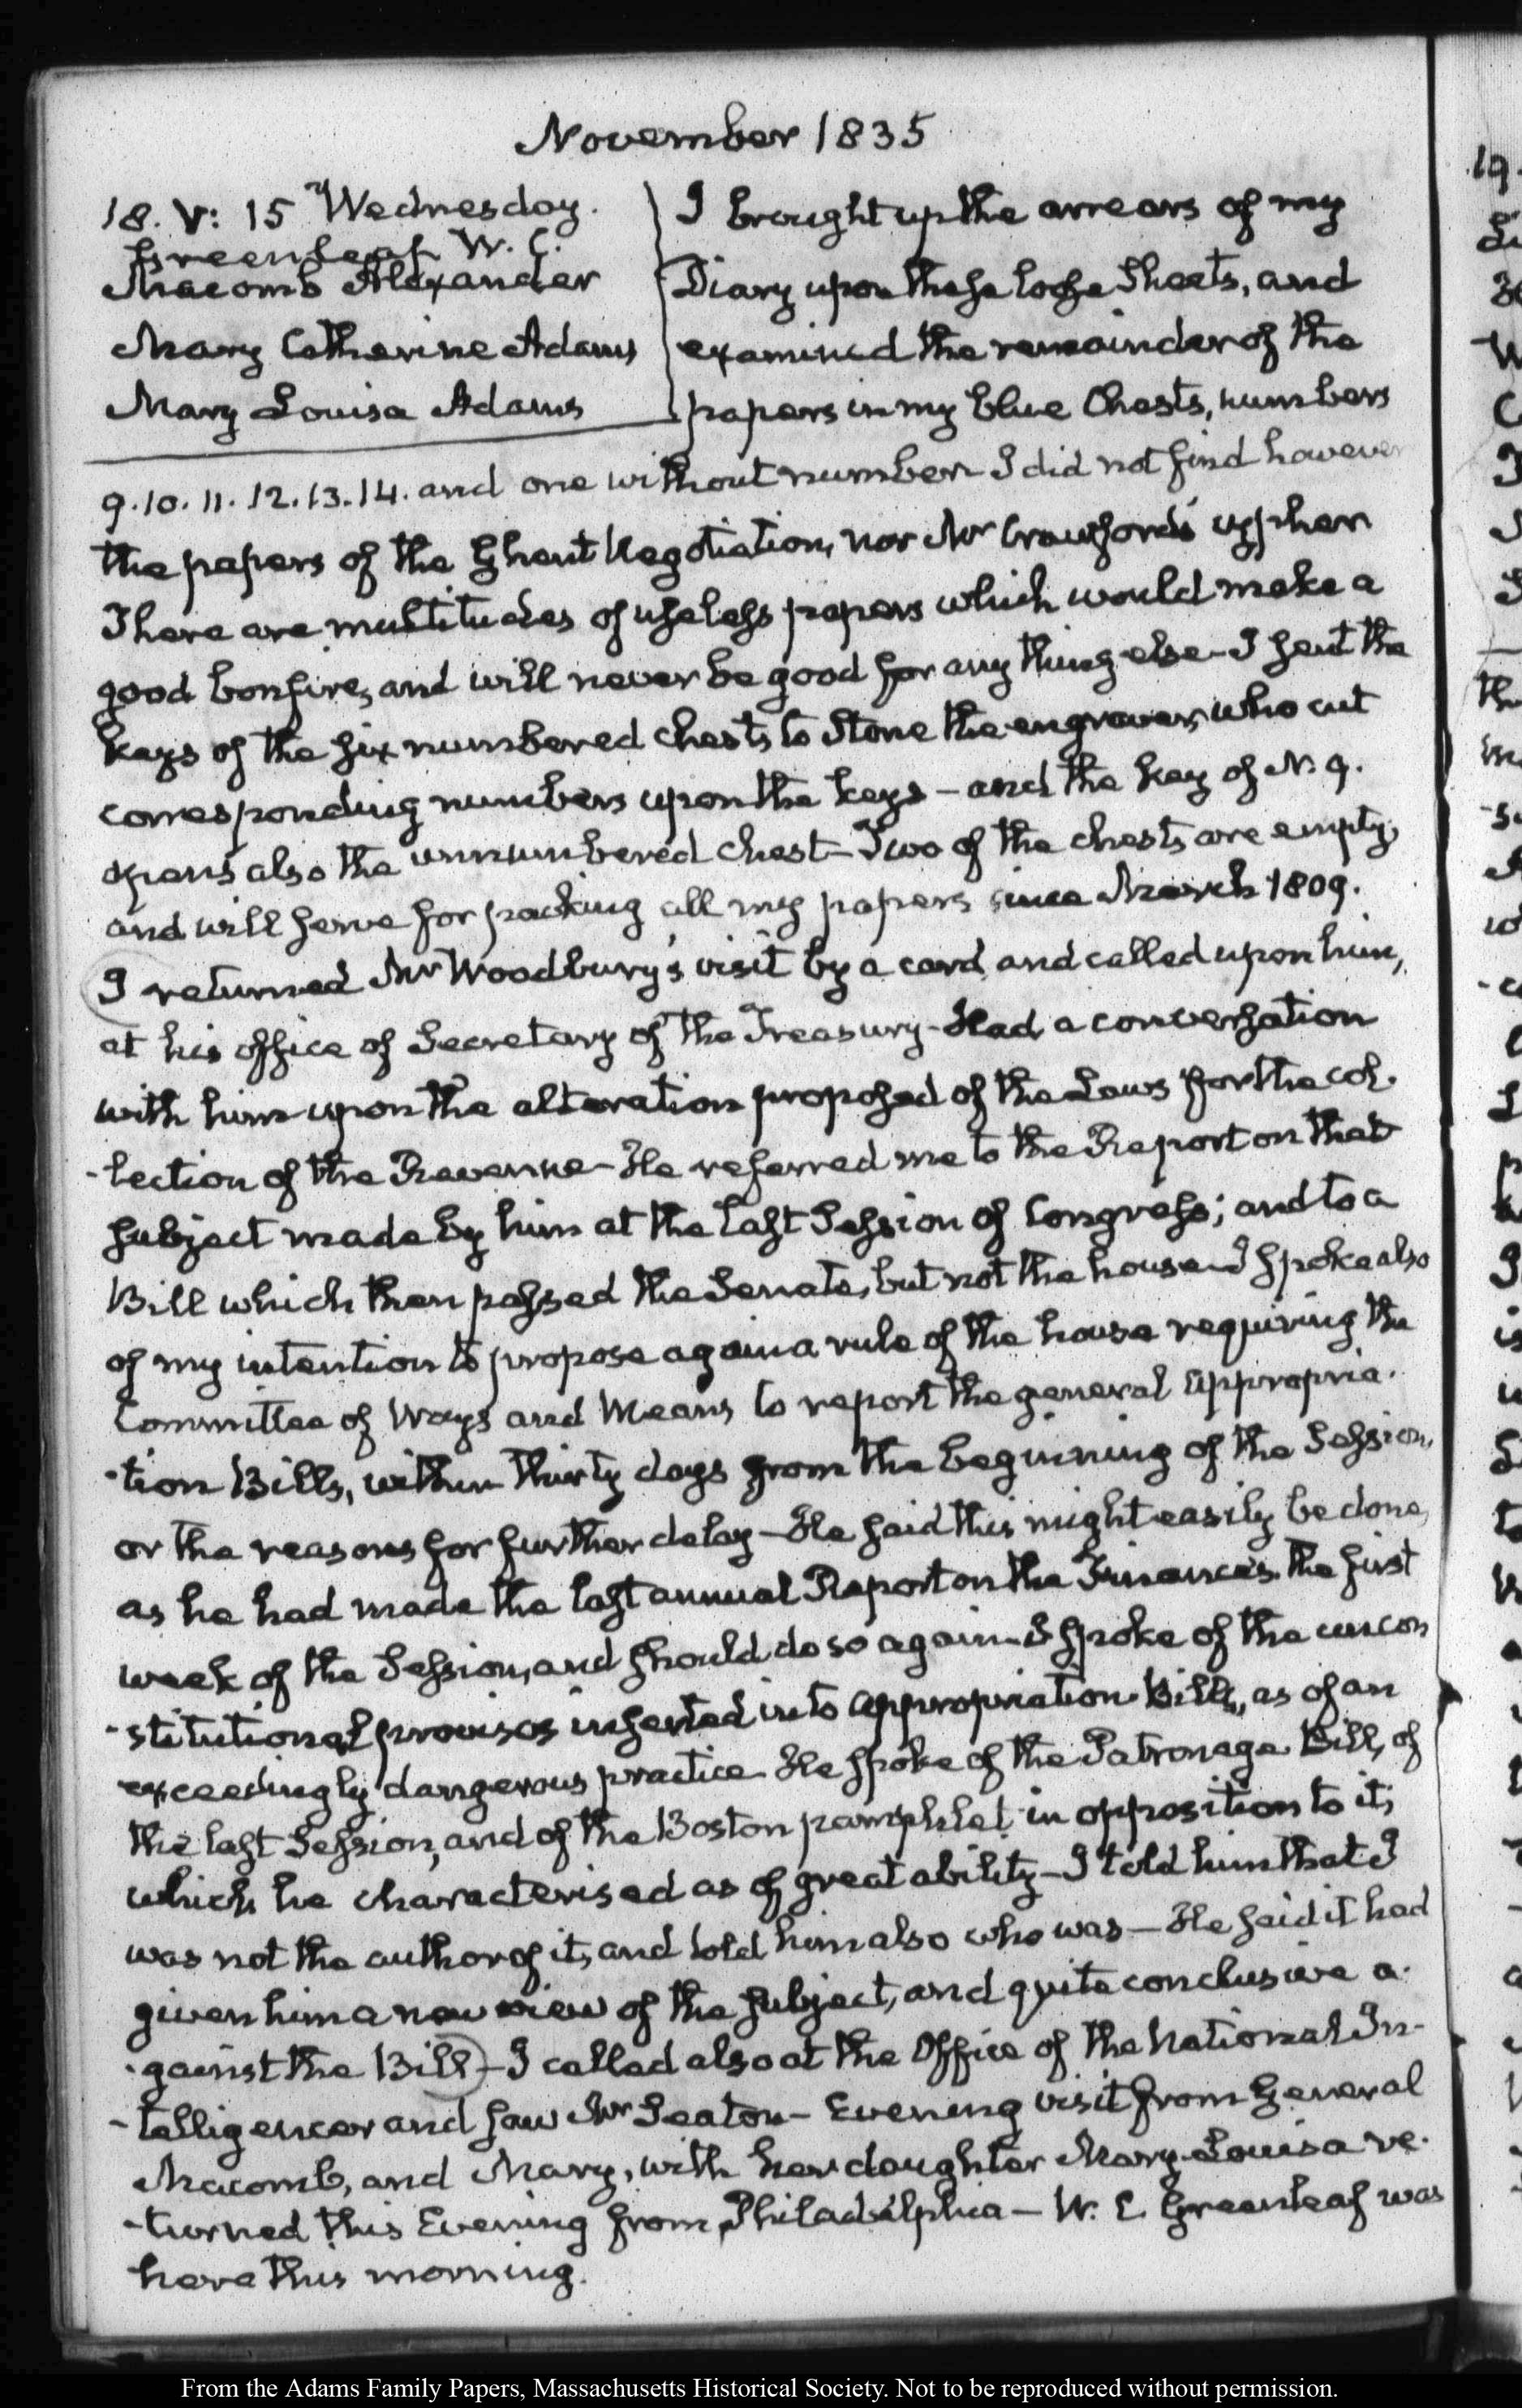 November 1835
18. V: 15 Wednesday.
Greenleaf W. C.
Macomb Alexander
Mary Catherine Adams
Mary Louisa Adams
I brought up the arrears of my
Diary upon these loose Sheets, and
examined the remainder of the
papers in my blue Chests, numbers
9. 10. 11. 12. 13. 14. and one without number I did not find however
the papers of the Ghent Negotiation, nor Mr Crawford's cypher
There are multitudes of useless papers which would make a
good bonfire, and will never be good for any thing else – I sent the
keys of the six numbered chests to Stone the engraver, who cut
corresponding numbers upon the keys – and the key of N. 9.
opens also the unnumbered chest – Two of the chests are empty,
and will serve for packing all my papers since March 1809.
I returned Mr Woodbury's visit by a card, and called upon him,
at his office of Secretary of the Treasury – Had a conversation
with him upon the alteration proposed of the Laws for the col-
-lection of the Revenue – He referred me to the Report on that
subject made by him at the last Session of Congress; and to a
Bill which then passed the Senate, but not the house – I spoke also
of my intention to propose again a rule of the house requiring the
Committee of Ways and Means to report the general appropria-
-tion Bills, within thirty days from the beginning of the Session,
or the reasons for further delay – He said this might easily be done,
as he had made the last annual Report on the Finances the first
week of the Session, and should do so again – I spoke of the uncon
-stitutional provisos inserted into appropriation Bills, as of an
exceedingly dangerous practice – He spoke of the Patronage Bill, of
the last Session, and of the Boston pamphlet in opposition to it,
which he characterised as of great ability – I told him that I
was not the author of it, and told him also who was – He said it had
given him a new view of the subject, and quite conclusive a-
-gainst the Bill – I called also at the Office of the National In-
-telligencer and saw Mr Seaton – Evening visit from General
Macomb, and Mary, with her daughter Mary Louisa re-
-turned this Evening from Philadelphia – W. C. Greenleaf was
here this morning.
From the Adams Family Papers, Massachusetts Historical Society. Not to be reproduced without permission.